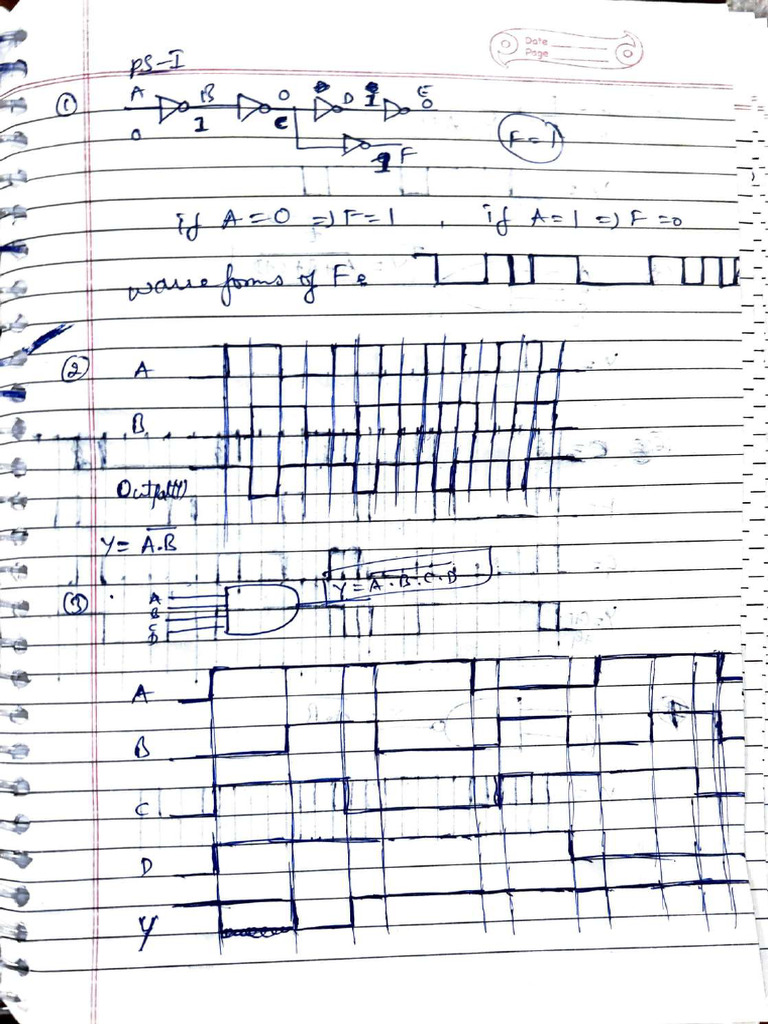 Date
Page
PS-I
① A B 0 D 1 E
0 1 C 0
1 F F=1
if A=0 ⇒ F=1 , if A=1 ⇒ F=0
wave forms of F
② A
B
Output(Y)
Y = \overline{A.B}
③ A
B Y = \overline{A.B.C.D}
C
D
A
B
C
D
Y